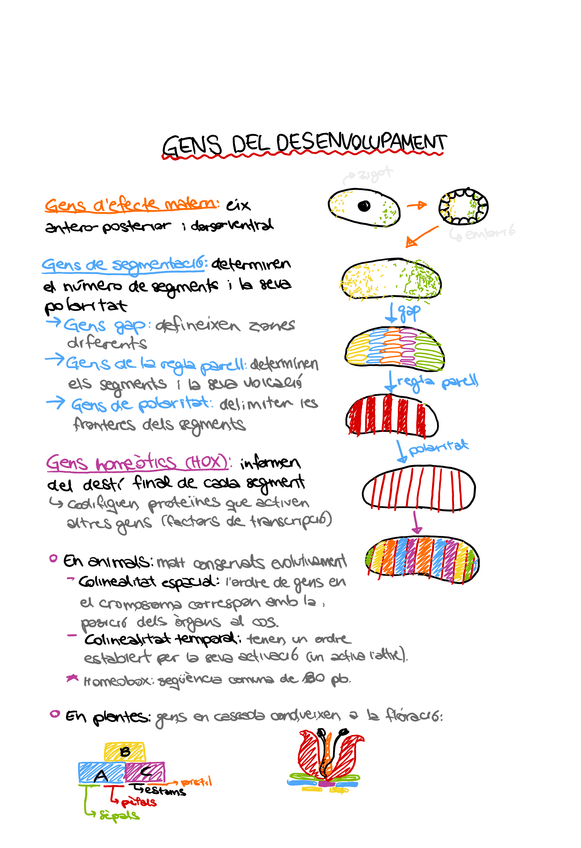 GENS DEL DESENVOLUPAMENT
zigot
Gens d'efecte matern: eix
antero-posterior i dorso-ventral
embrió
Gens de segmentació: determinen
el número de segments i la seva
polaritat
→ Gens gap: defineixen zones
diferents
→ Gens de la regla parell: determinen
els segments i la seva ubicació
→ Gens de polaritat: delimiten les
fronteres dels segments
gap
regla parell
polaritat
Gens homeòtics (HOX): informen
del destí final de cada segment
↳ Codifiquen proteïnes que activen
altres gens (factors de transcripció)
En animals: molt conservats evolutivament
- Colinealitat espacial: l'ordre de gens en
el cromosoma correspon amb la
posició dels òrgans al cos.
- Colinealitat temporal: tenen un ordre
establert per la seva activació (un activa l'altre).
* Homeobox: seqüència comuna de 180 pb.
En plantes: gens en cascada condueixen a la floració:
B
A C
pistil
estams
pètals
sèpals